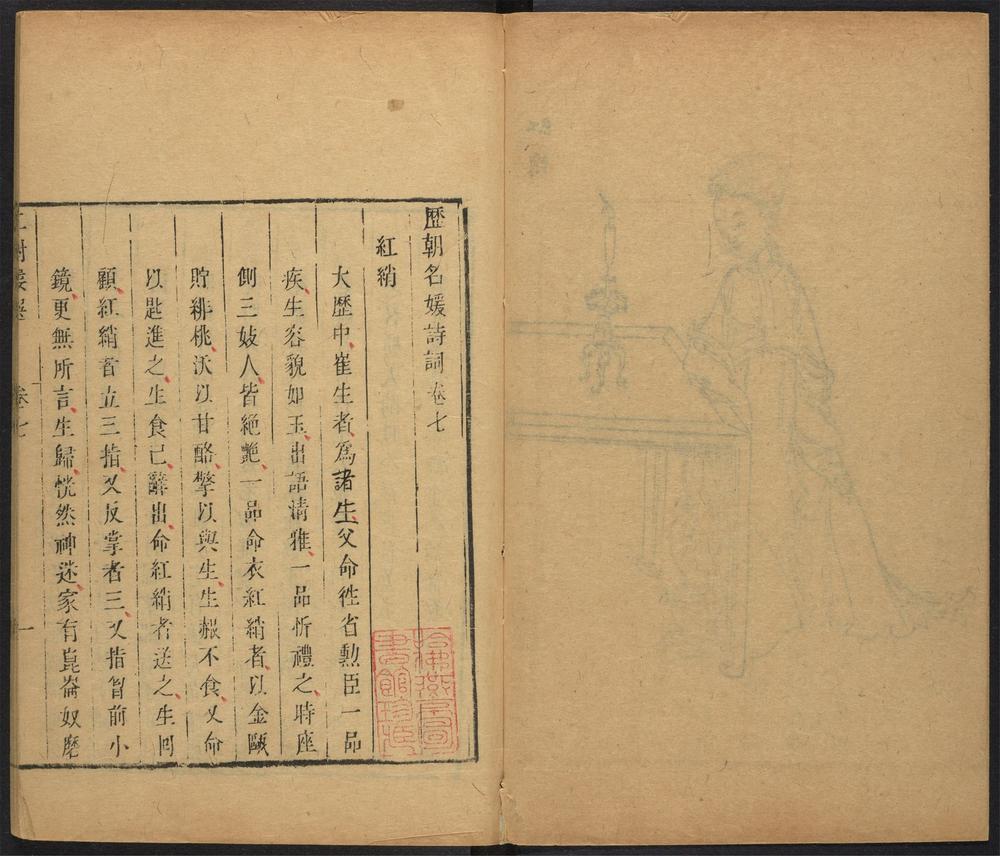 歷朝名媛詩詞卷七
紅綃
大歷中崔生者爲諸生父命徃省勲臣一品
疾生容貌如玉出語清雅一品忻禮之時座
側三妓人皆絕艷一品命衣紅綃者以金甌
貯緋桃沃以甘酪擎以與生生赧不食又命
以匙進之生食已辭出命紅綃者送之生囘
顧紅綃者立三指又反掌者三又指智前小
鏡更無所言生歸恍然神迷家有崑崙奴磨
卷七
一
哈佛燕京圖
書館珍藏